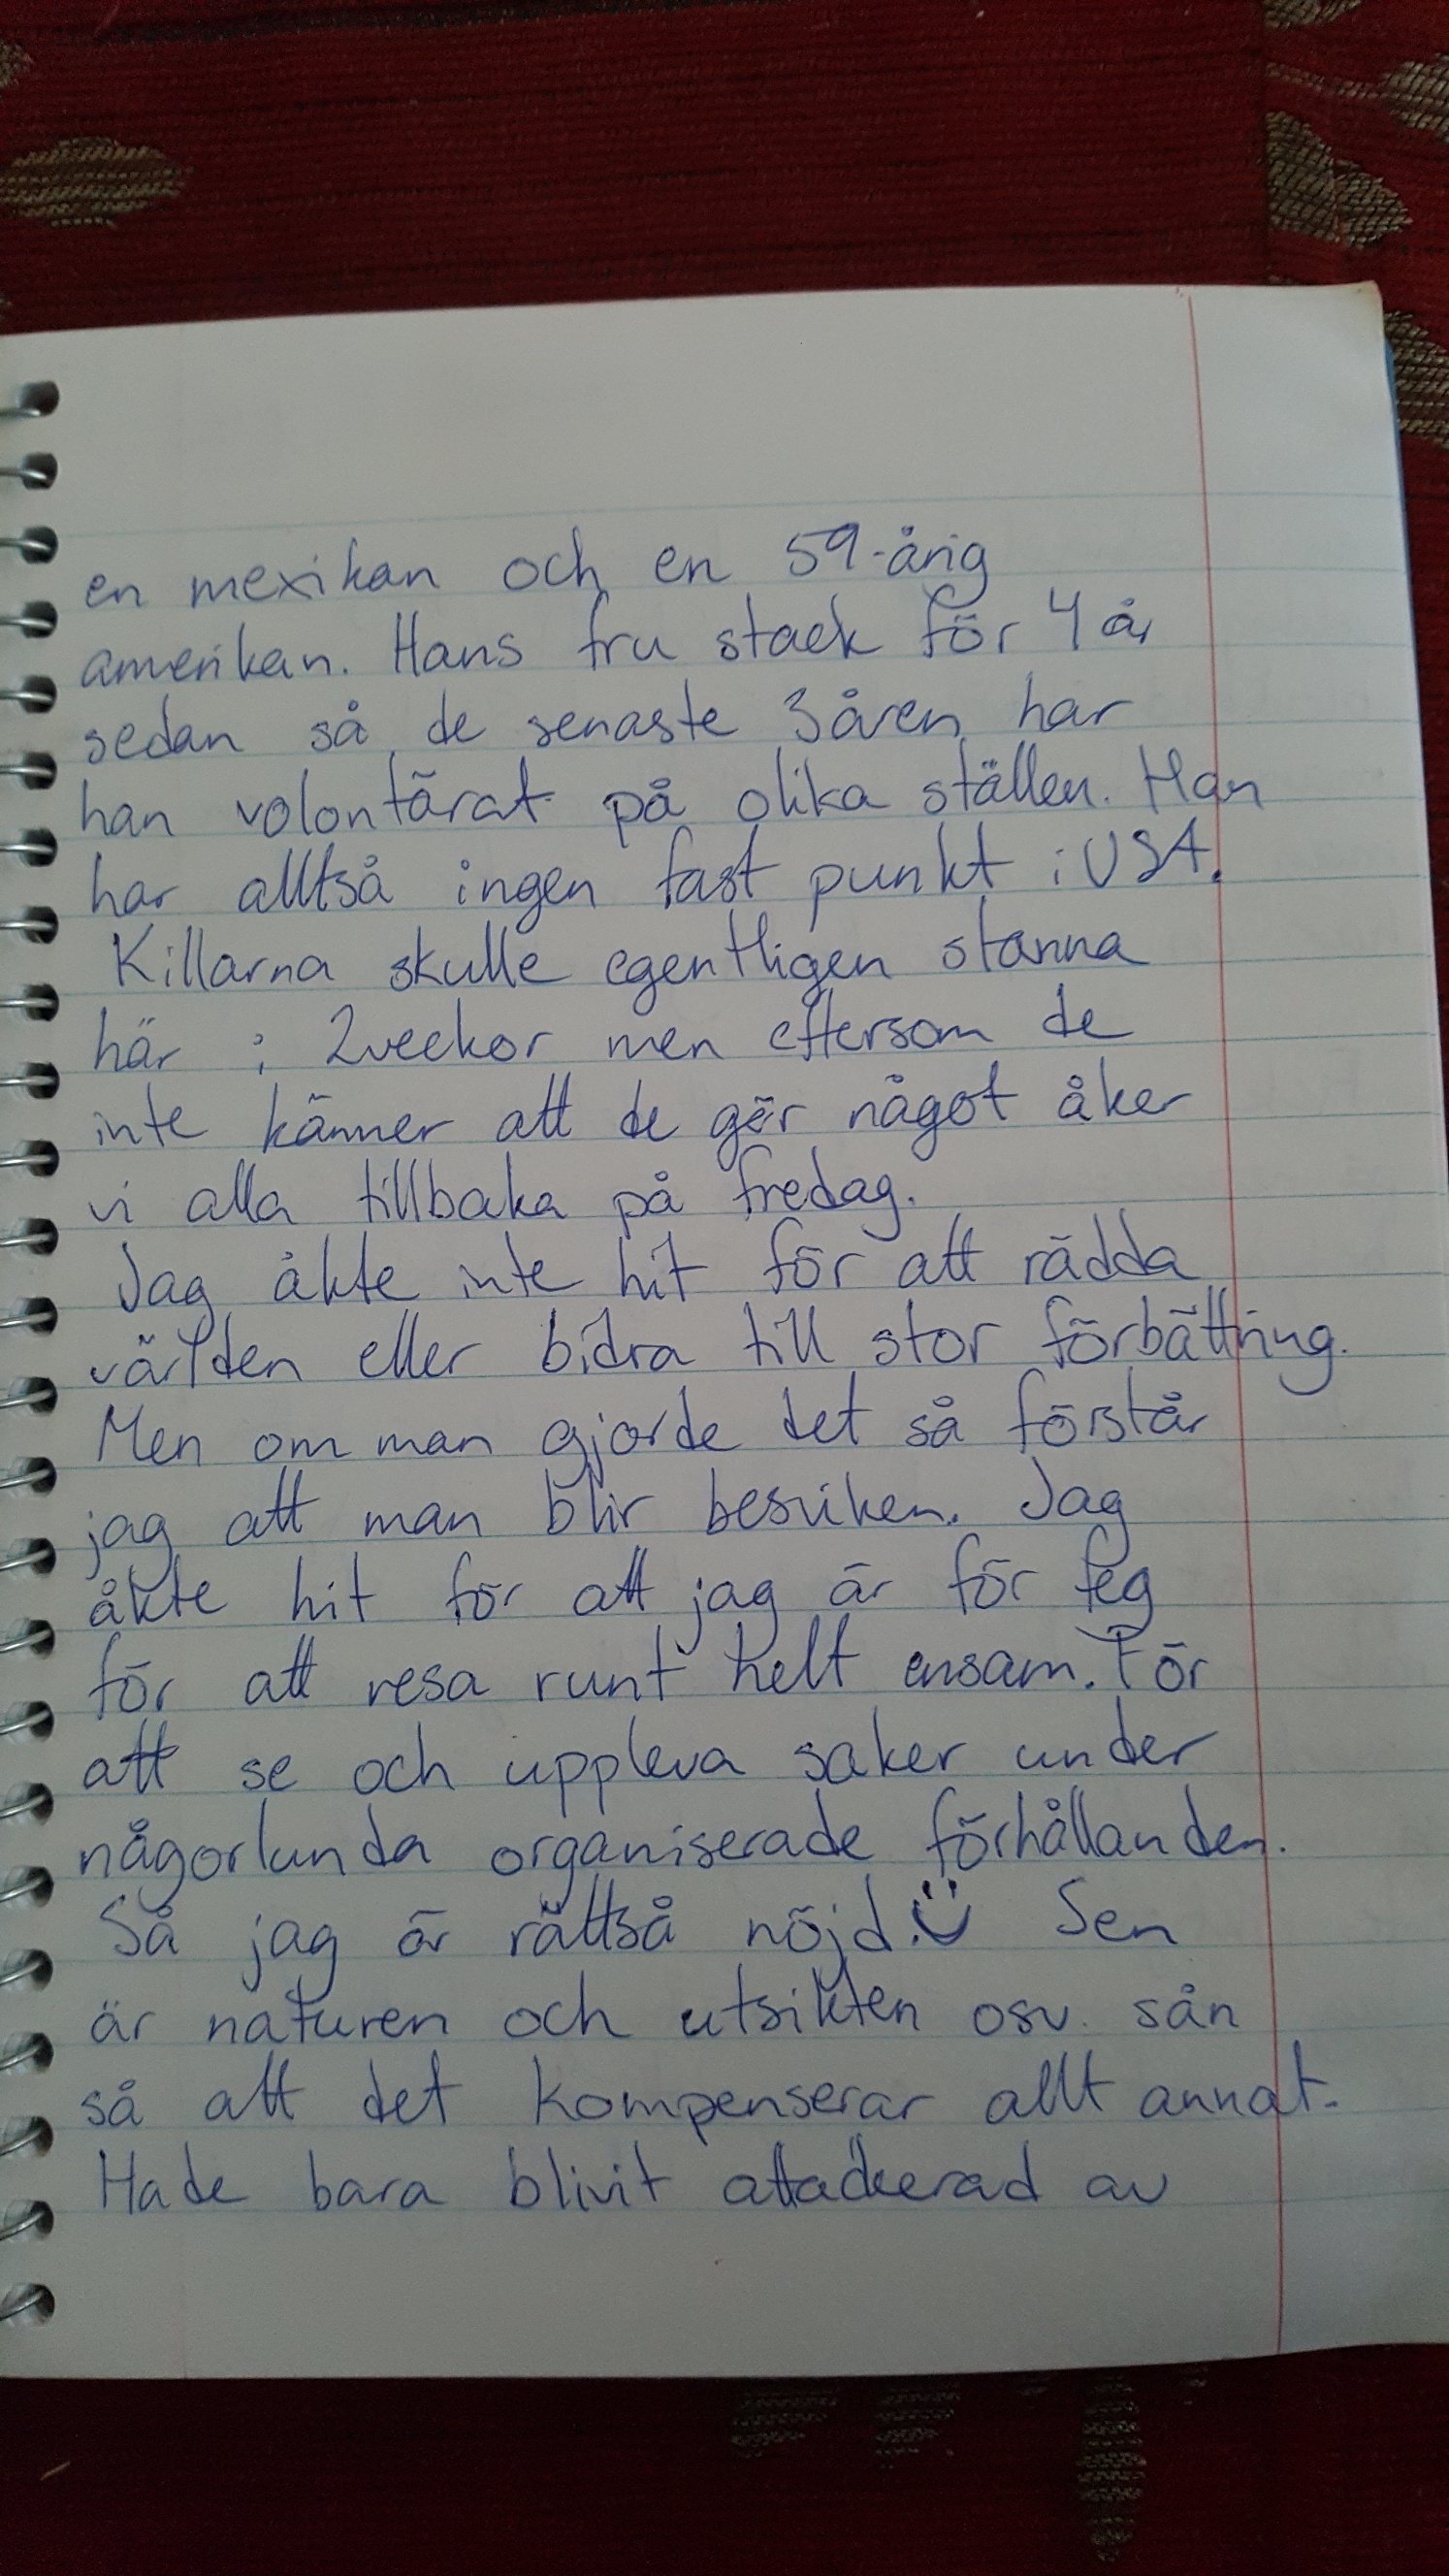 en mexikan och en 59-årig
amerikan. Hans fru stack för 4 år
sedan så de senaste 3 åren har
han volontärat på olika ställen. Han
har alltså ingen fast punkt i USA.
Killarna skulle egentligen stanna
här i 2 veckor men eftersom de
inte känner att de gör något åker
vi alla tillbaka på fredag.
Jag åkte inte hit för att rädda
världen eller bidra till stor förbättring.
Men om man gjorde det så förstår
jag att man blir besviken. Jag
åkte hit för att jag är för feg
för att resa runt helt ensam. För
att se och uppleva saker under
någorlunda organiserade förhållanden.
Så jag är rättså nöjd. Sen
är naturen och utsikten osv. sån
så att det kompenserar allt annat.
Hade bara blivit attackerad av